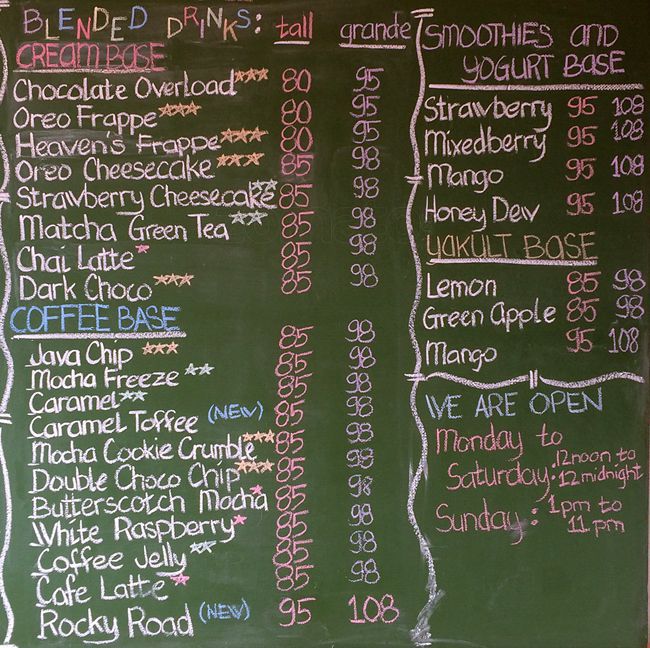 BLENDED DRINKS: tall grande
CREAM BASE
Chocolate Overload*** 80 95
Oreo Frappe*** 80 95
Heaven's Frappe*** 80 95
Oreo Cheesecake*** 85 98
Strawberry Cheesecake** 85 98
Matcha Green Tea** 85 98
Chai Latte* 85 98
Dark Choco*** 85 98
COFFEE BASE
Java Chip*** 85 98
Mocha Freeze** 85 98
Caramel** 85 98
Caramel Toffee (NEW) 85 98
Mocha Cookie Crumble*** 85 98
Double Choco Chip*** 85 98
Butterscotch Mocha* 85 98
White Raspberry* 85 98
Coffee Jelly** 85 98
Cafe Latte* 85 98
Rocky Road (NEW) 95 108
SMOOTHIES AND
YOGURT BASE
Strawberry 95 108
Mixedberry 95 108
Mango 95 108
Honey Dew 95 108
YAKULT BASE
Lemon 85 98
Green Apple 85 98
Mango 95 108
WE ARE OPEN
Monday to
Saturday: 12noon to
12midnight
Sunday: 1pm to
11.pm